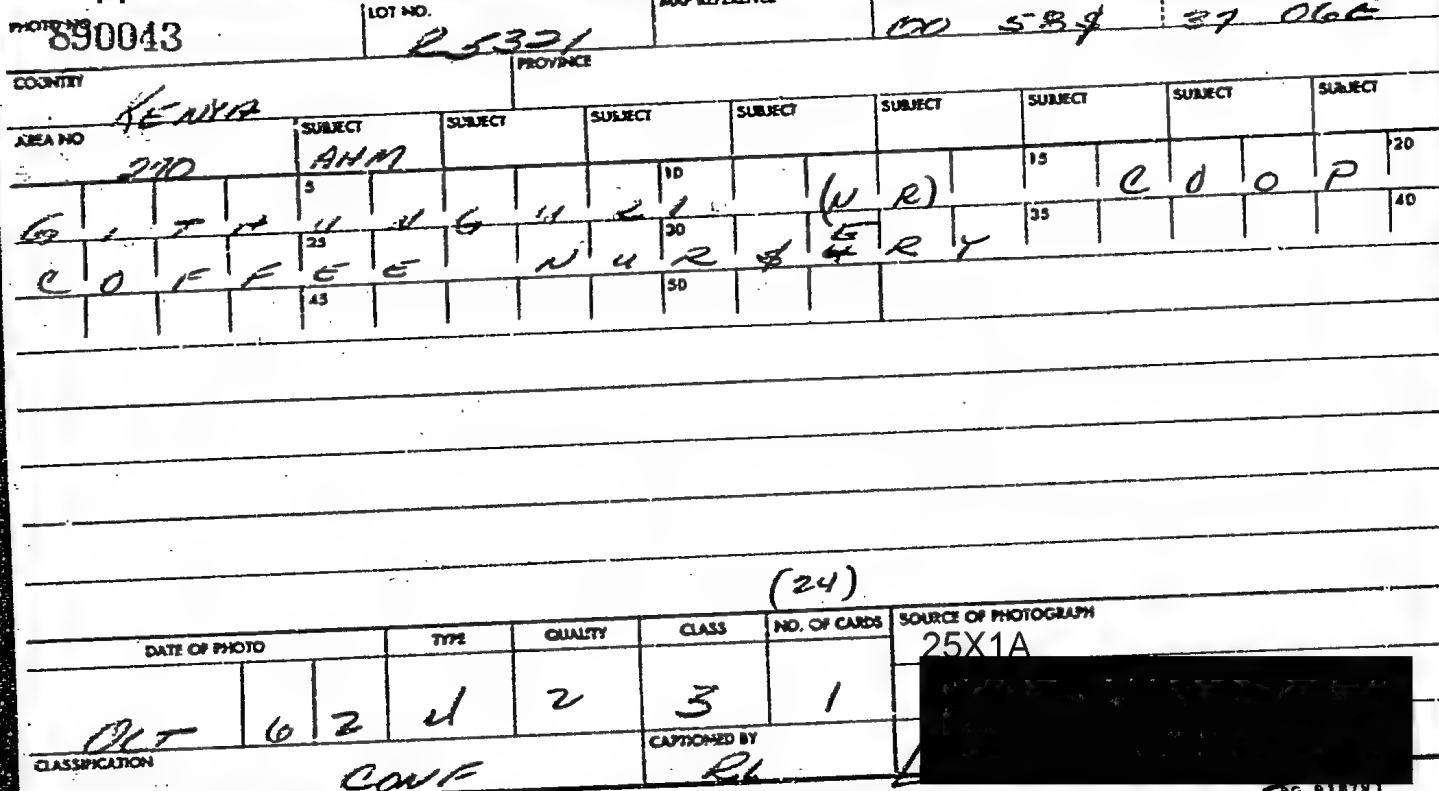 PHOTO NO. 890043 LOT NO. R5321 MAP REFERENCE 00 58S 37 06E
COUNTRY KENYA PROVINCE
AREA NO 270 SUBJECT AHM SUBJECT SUBJECT SUBJECT SUBJECT SUBJECT SUBJECT SUBJECT
5 10 15 20
(NR) COOP
25 30 35 40
COFFEE NURSERY
45 50
(24)
DATE OF PHOTO TYPE QUALITY CLASS NO. OF CARDS SOURCE OF PHOTOGRAPH
25X1A
OCT 6 2 4 2 3 1
CLASSIFICATION CONF CAPTIONED BY RL